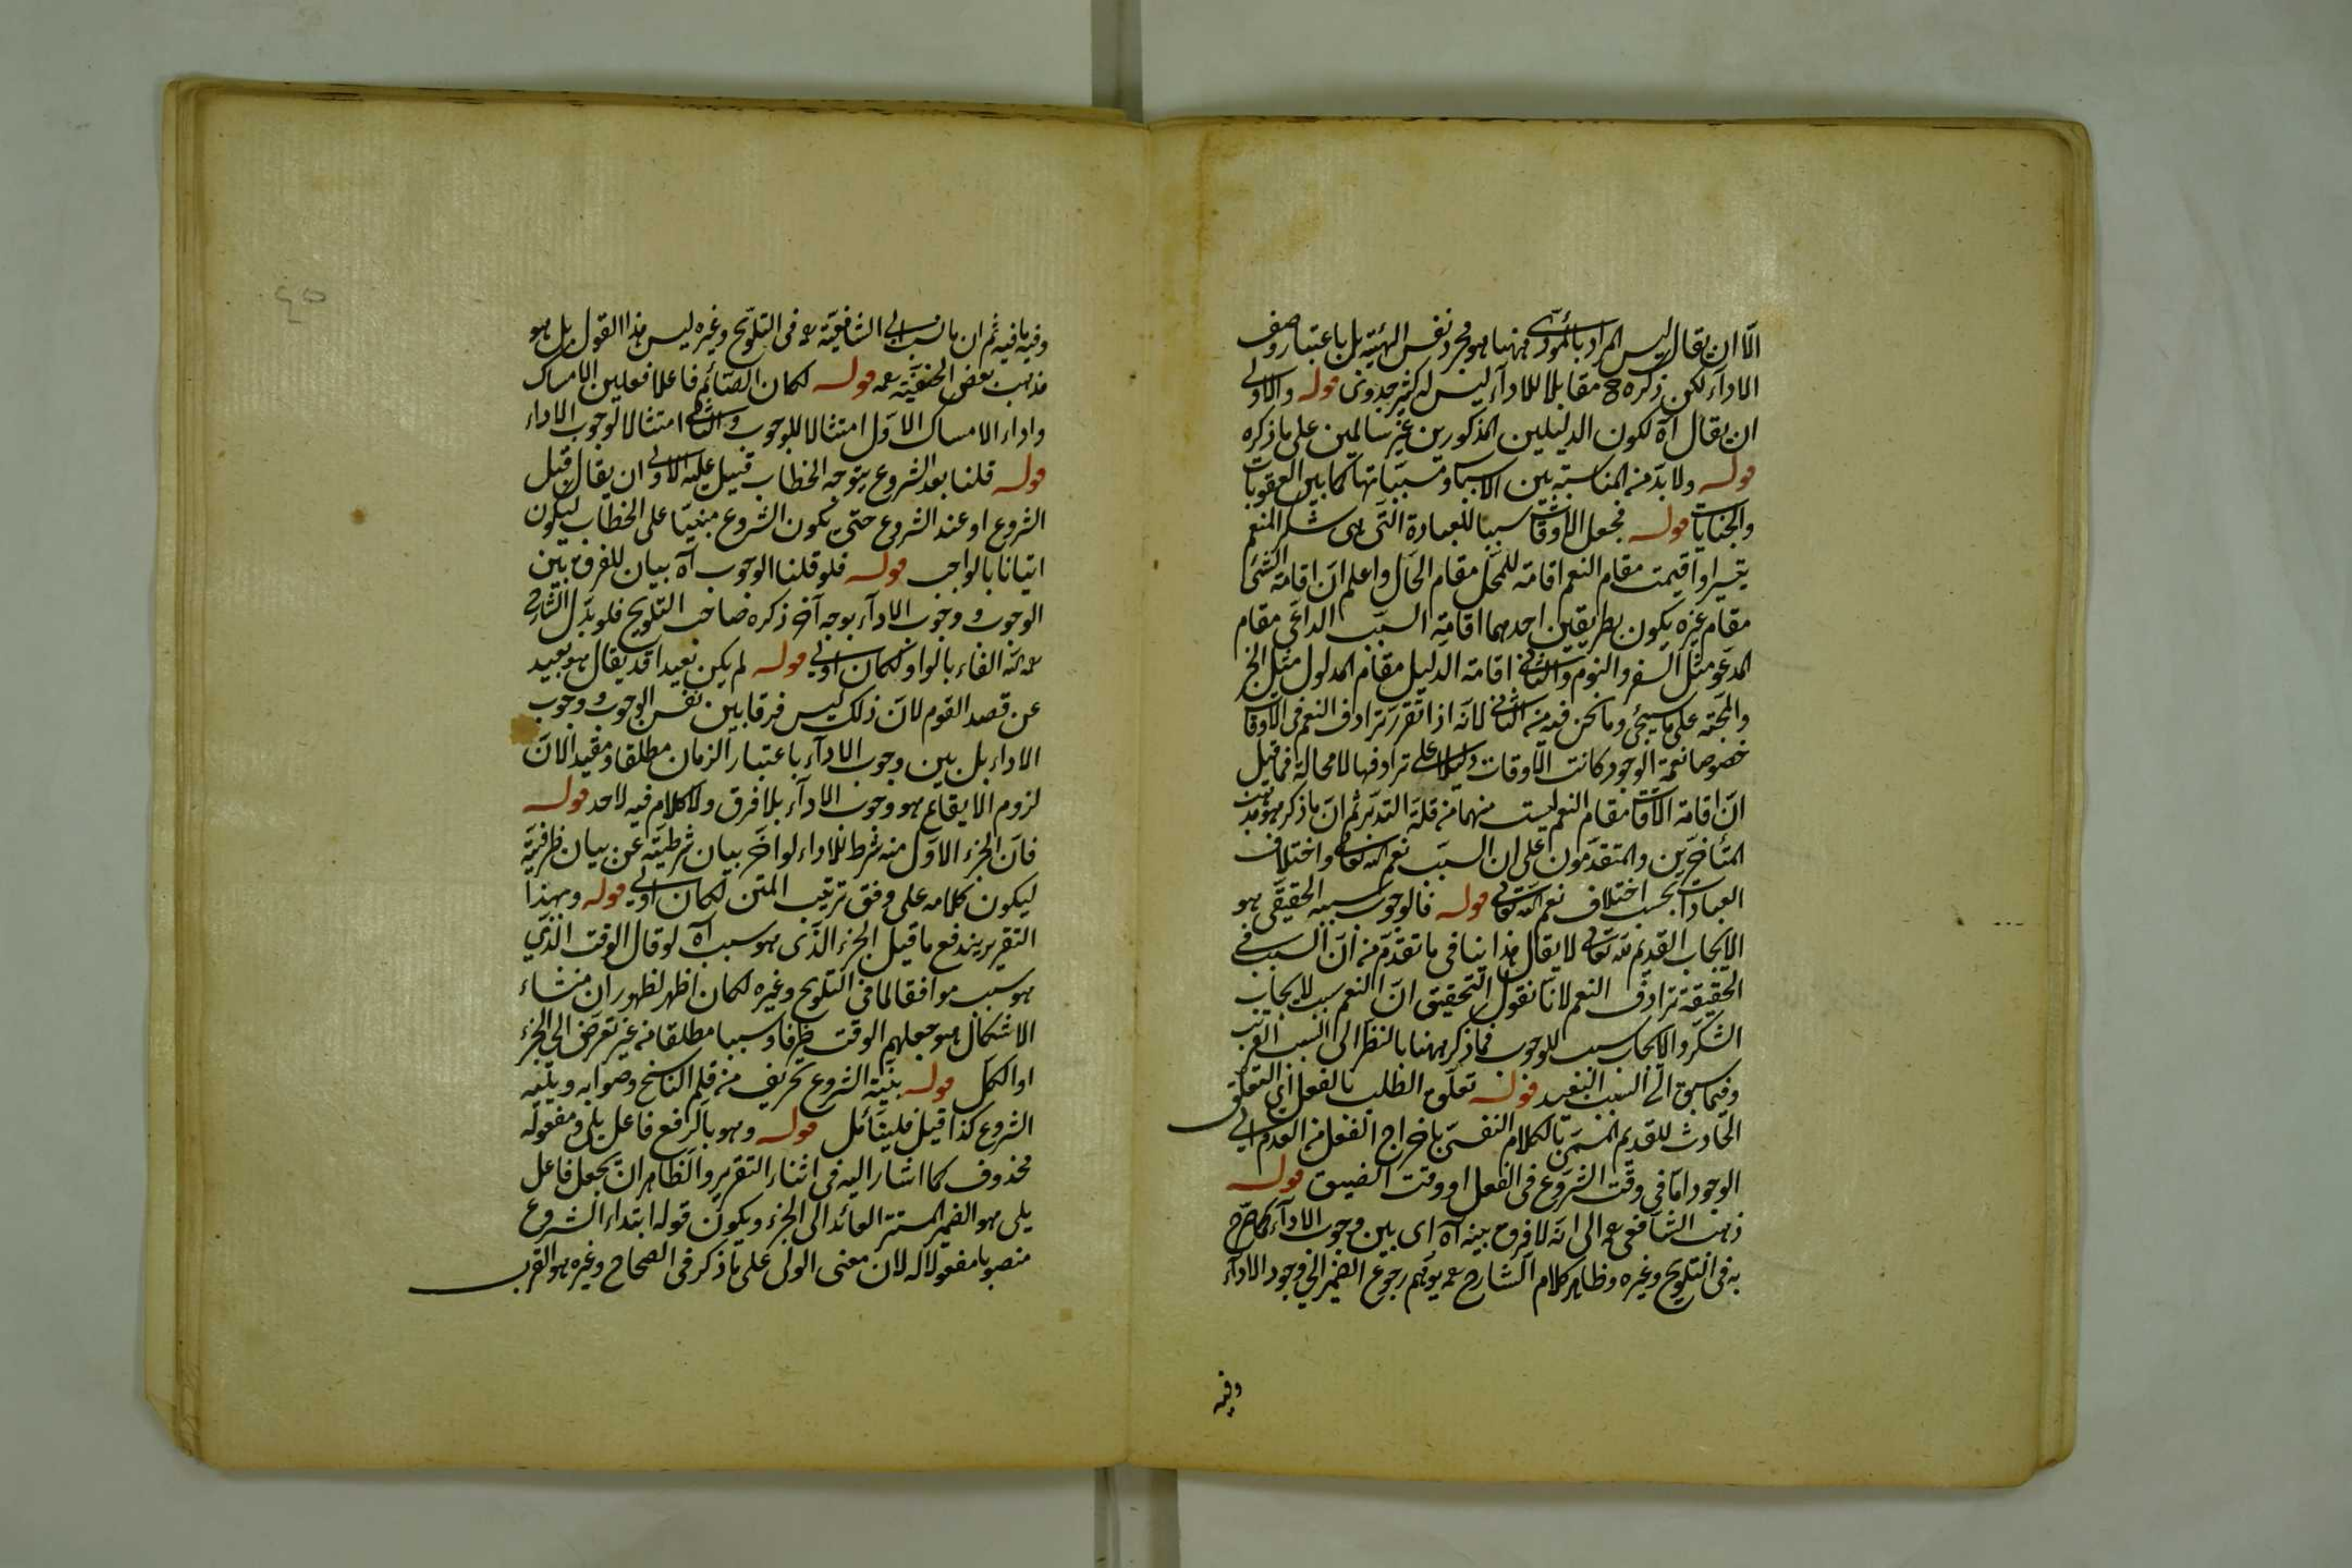 الّا ان يقال ليس المراد بالمؤدّى ههنا هو مجرد نفس الهيئة بل باعتبار وصف
الادآء لكن ذكره ح مقابلا للادآء ليس له كثير جدوى قوله والاولى
ان يقال آه لكون الدليلين المذكورين غير سالمين على ما ذكره
قوله ولا بدّ من المناسبة بين الاسباب ومسبّباتها كما بين العقوبات
والجنايات قوله فجعل الاوقات سببا للعبادة التى هى شكر المنعم
تيسيرا واقيمت مقام النعم اقامة للمحل مقام الحال واعلم انّ اقامة الشئ
مقام غيره يكون بطريقين احدهما اقامة السبب الداعى مقام
المدعو مثل السفر والنوم والثانى اقامة الدليل مقام المدلول مثل الخبر
والمحبّة على ما سيجئ وما نحن فيه من الثانى لانّه اذا تقرر ترادف النعم فى الاوقات
خصوصا نعمة الوجود كانت الاوقات دليلا على ترادفها لا محالة فما قيل
انّ اقامة الاوقات مقام النعم ليست منهما من قلة التدبّر ثم انّ ما ذكر هو مذهب
المتأخرين والمتقدّمون على ان السبب نعم الله تعالى واختلاف
العبادات بحسب اختلاف نعم الله تعالى قوله فالوجوب سببه الحقيقى هو
الايجاب القديم لله تعالى لا يقال هذا ينافى ما تقدّم من انّ السبب فى
الحقيقة ترادف النعم لانّا نقول التحقيق انّ النعم سبب للايجاب
الشكر والايجاب سبب للوجوب فما ذكر ههنا بالنظر الى السبب القريب
وفيما سبق الى السبب البعيد قوله تعلّق الطلب بالفعل اى التعلّق
الحادث للقديم المسمّى بالكلام النفسى باخراج الفعل من العدم الى
الوجود امّا فى وقت الشروع فى الفعل او وقت الضيق قوله
ذهب الشافعى رحمه الى انّه لا فرق بينه آه اى بين وجوب الادآء كما صرّح
به فى التلويح وغيره وظاهر كلام الشارح رحمه يوهم رجوع الضمير الى وجود الادآء
وفيه
٤٥
وفيه ما فيه ثم ان ما نسب الى الشافعيّة رحمه فى التلويح وغيره ليس هذا القول بل هو
مذهب بعض الحنفيّة رحمه قوله لكان الصائم فاعلا فعلين الامساك
واداء الامساك الاوّل امتثالا للوجوب والثانى امتثالا لوجوب الاداء
قوله قلنا بعد الشروع يتوجه الخطاب قيل عليه الاولى ان يقال قبل
الشروع او عند الشروع حتى يكون الشروع مبنيّا على الخطاب ليكون
اتيانا بالواجب قوله فلو قلنا الوجوب آه بيان للفرق بين
الوجوب ووجوب الادآء بوجه آخر ذكره صاحب التلويح فلو بدّل الشارح
رحمه الله الفاء بالواو لكان اولى قوله لم يكن بعيدا قد يقال هو بعيد
عن قصد القوم لانّ ذلك ليس فرقا بين نفس الوجوب ووجوب
الاداء بل بين وجوب الادآء باعتبار الزمان مطلقا ومقيدا لانّ
لزوم الايقاع هو وجوب الادآء بلا فرق ولا كلام فيه لاحد قوله
فانّ الجزء الاوّل منه شرط للاداء لو اخّر بيان شرطيّته عن بيان ظرفيّته
ليكون كلامه على وفق ترتيب المتن لكان اولى قوله وبهذا
التقرير يندفع ما قيل الجزء الذى هو سبب آه لو قال الوقت الذى
هو سبب موافقا لما فى التلويح وغيره لكان اظهر لظهور ان منشاء
الاشكال هو جعلهم الوقت ظرفا وسببا مطلقا من غير تعرّض الى الجزء
او الكل قوله بنية الشروع تحريف من قلم الناسخ وصوابه ويليه
الشروع كذا قيل فليتأمل قوله وهو بالرفع فاعل يلى ومفعوله
محذوف كما اشار اليه فى اثناء التقرير والظاهر ان يجعل فاعل
يلى هو الضمير المستتر العائد الى الجزء ويكون قوله ابتداء الشروع
منصوبا مفعولا له لان معنى الولى على ما ذكر فى الصحاح وغيره هو القرب